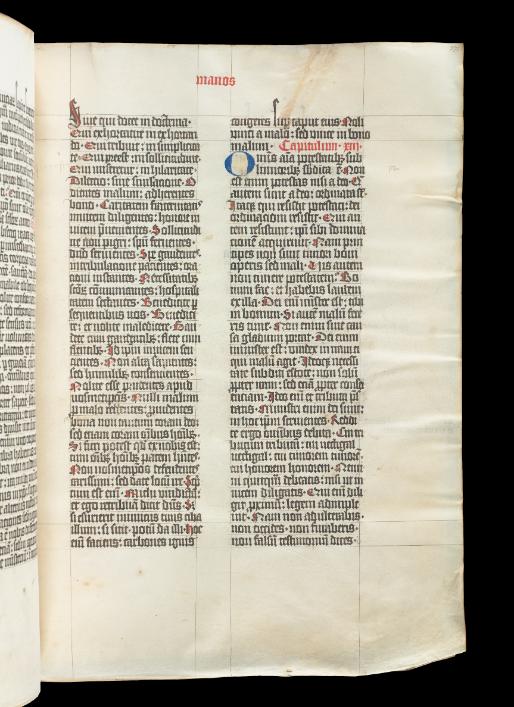 manos
Sive qui docet in doctrina·
Qui exhortatur in exhortan
do· Qui tribuit: in simplicita
te· Qui preest: in sollicitudine·
Qui miseretur: in hilaritate·
Dilectio: sine simulatione· O
dientes malum: adherentes
bono· Caritatem fraternita
invicem diligentes: honore in
vicem prevenientes· Sollicitudi
ne non pigri: spiritu ferventes·
domino servientes· Spe gaudentes
in tribulatione pacientes: ora
tioni instantes· Necessitatibus
sanctorum communicantes: hospitali
tatem sectantes· Benedicite per
sequentibus vos· Benedici
te: et nolite maledicere· Gau
dere cum gaudentibus: flere cum
flentibus· Id ipsum invicem sen
tientes· Non alta sapientes:
sed humilibus consentientes·
Nolite esse prudentes apud
vosmetipsos· Nulli malum
pro malo reddentes: providentes
bona non tantum coram deo:
sed etiam coram omnibus hominibus·
Si fieri potest quod ex vobis est:
cum omnibus hominibus pacem habentes·
Non vosmetipsos defendentes
carissimi: sed date locum ire· Scriptum
tum est enim· Michi vindictam:
et ego retribuam dicit dominus· Si
si esurierit inimicus tuus ciba
illum: si sitit· potum da illi· Hoc
enim faciens: carbones ignis
congeres super caput eius· Noli
vinci a malo: sed vince in bono
malum· Capitulum· xiii·
Omnis anima potestatibus sub
limioribus subdita est· Non
est enim potestas nisi a deo· Que
autem sunt a deo: ordinata sunt·
Itaque qui resistit potestati: dei
ordinacioni resistit· Qui au
tem resistunt: ipsi sibi damna
cionem acquirunt· Nam prin
cipes non sunt timori boni
operis sed mali· Vis autem
non timere potestatem? Bo
num fac: et habebis laudem
ex illa· Dei enim minister est: tibi
in bonum· Si autem malum fece
ris time· Non enim sine cau
sa gladium portat· Dei enim
minister est: vindex in iram ei
qui malum agit· Ideoque necessi
tate subditi estote: non solum
propter iram: sed etiam propter consci
enciam· Ideo enim et tributa pre
statis· Ministri enim dei sunt:
in hoc ipsum servientes· Reddi
te ergo omnibus debita· Cui tri
butum tributum: cui vectigal
vectigal: cui timorem timorem:
cui honorem honorem· Nemi
ni quicquam debeatis: nisi ut in
vicem diligatis· Qui enim dili
git proximum: legem adimple
vit· Nam non adulterabis·
non occides· non furaberis·
non falsum testimonium dices·